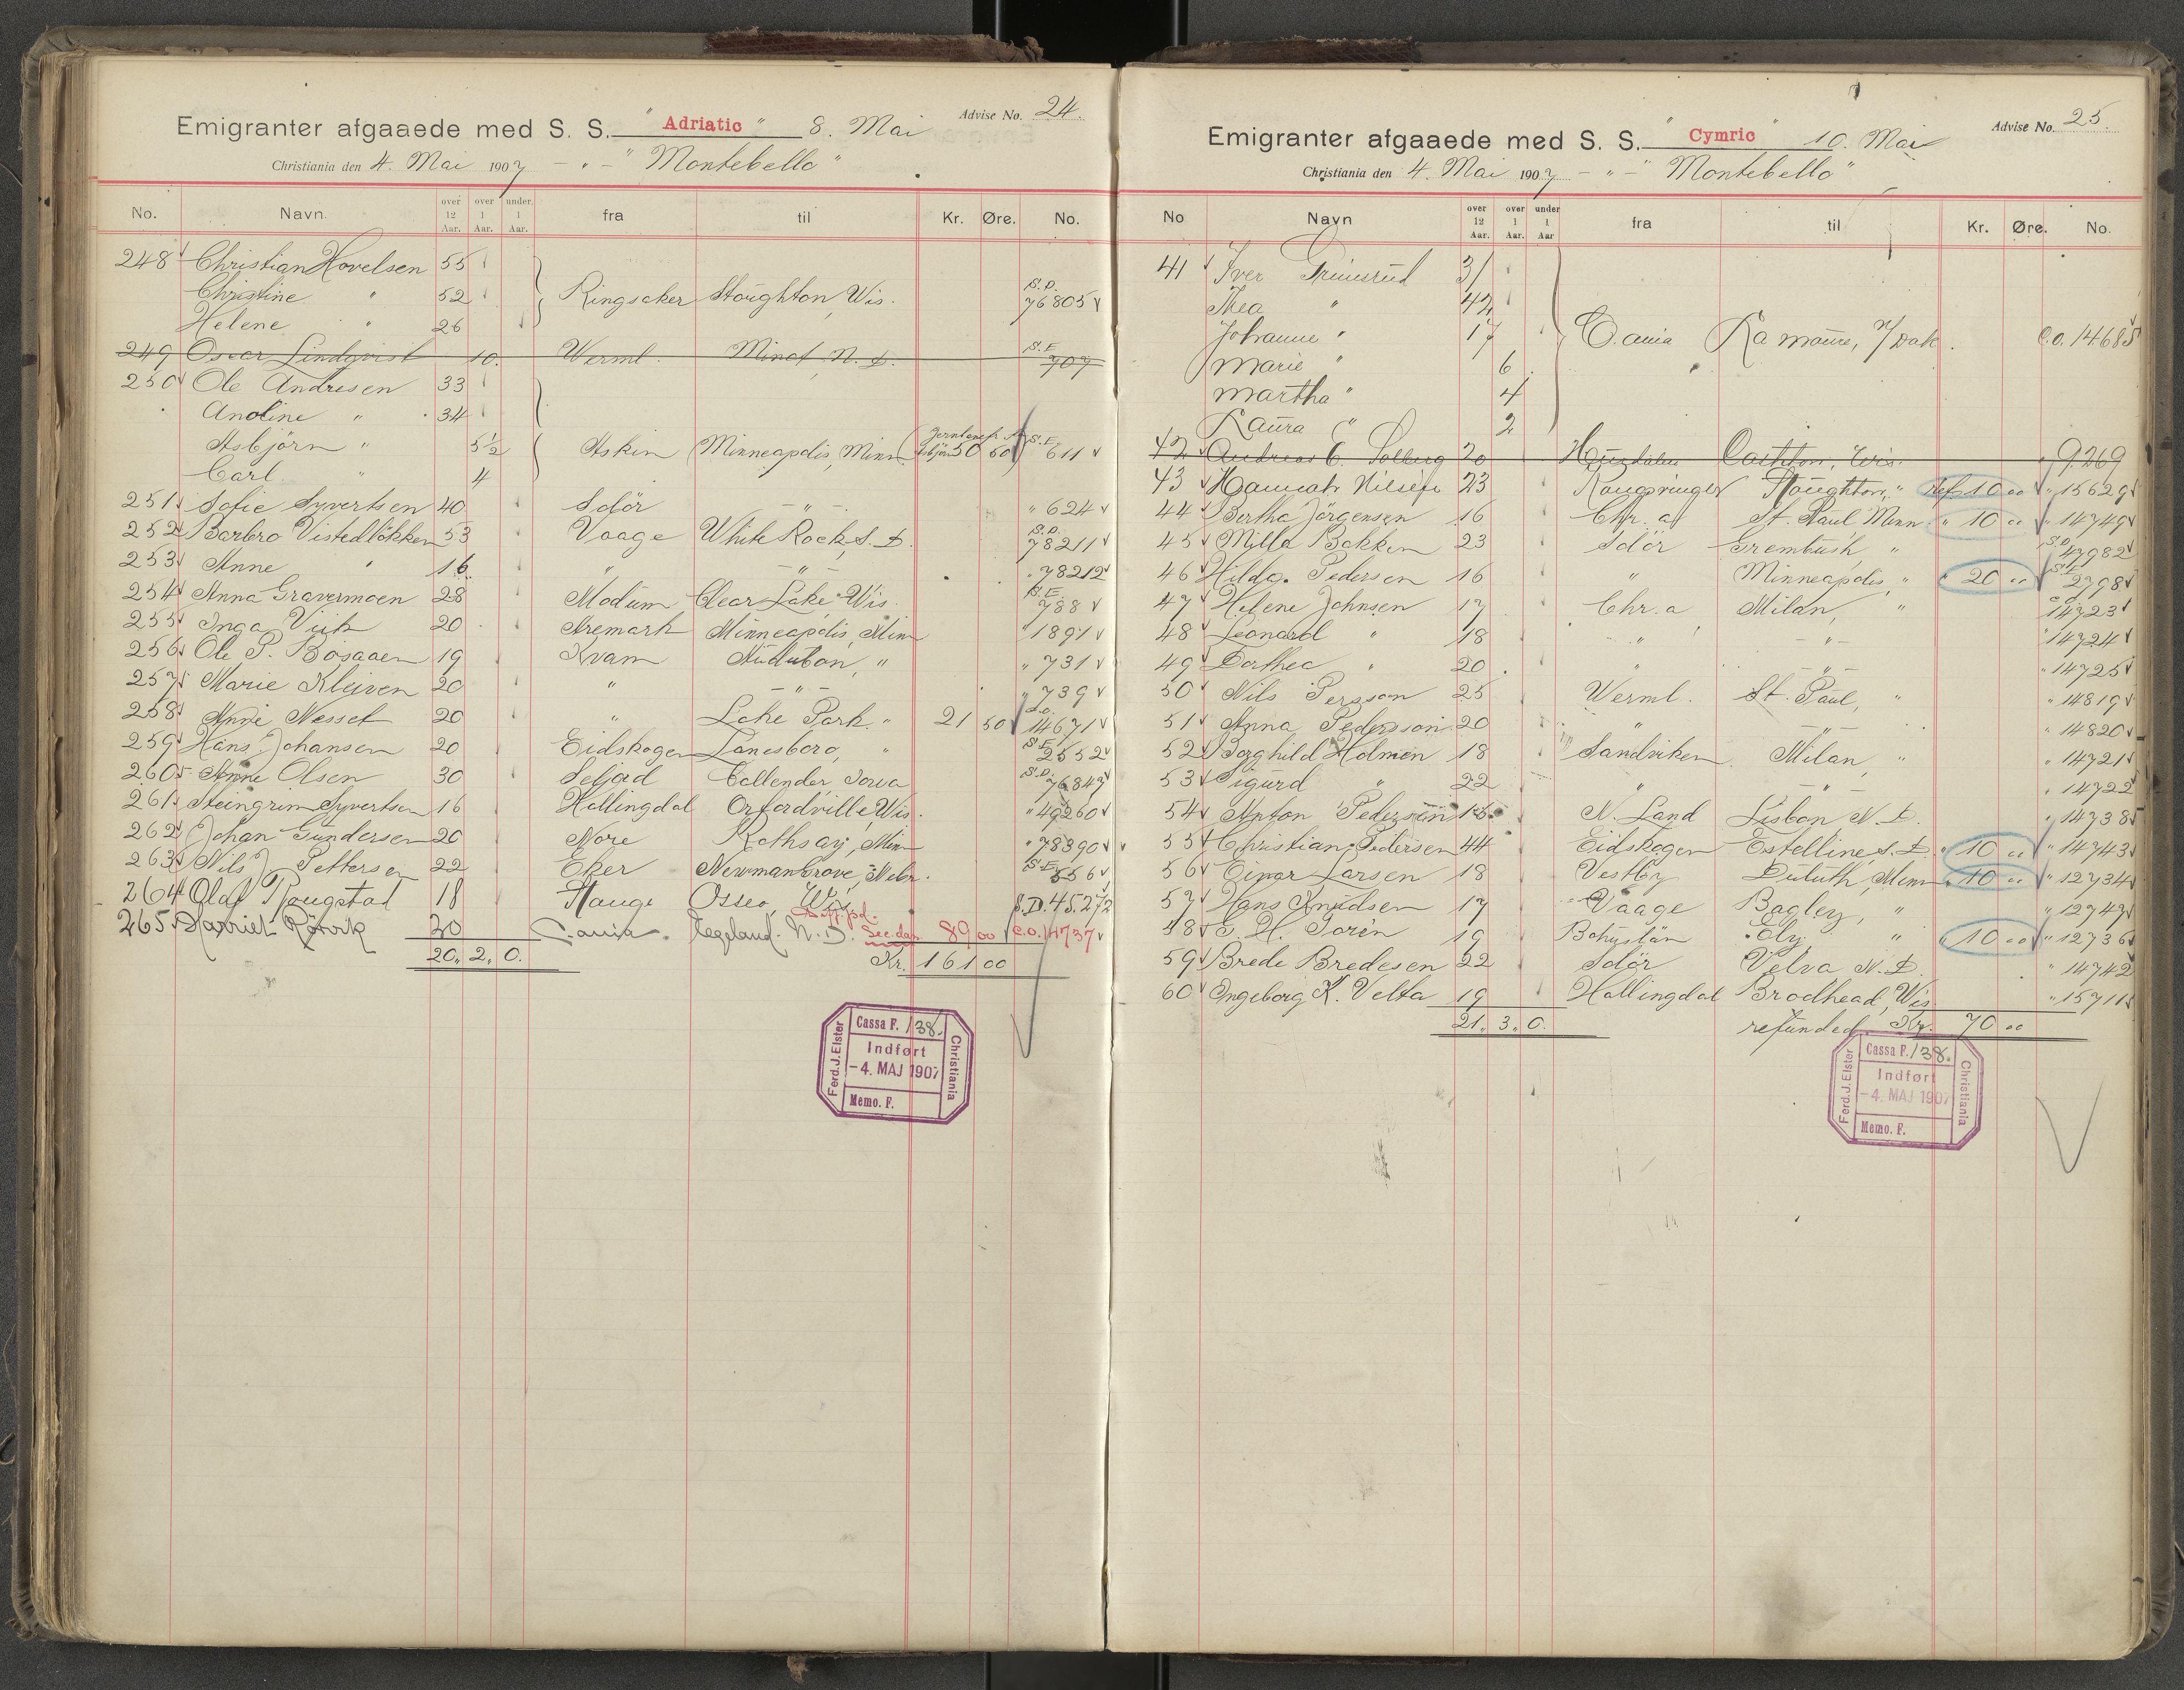 Emigranter afgaaede med S. S. "Adriatic" 8. Mai Advise No. 24.
Christiania den 4. Mai 1907 - " - "Montebello"
No. Navn. over 12 Aar. over 1 Aar. under 1 Aar. fra til Kr. Øre. No.
248 Christian Hovelsen 55
Christine " 52 Ringsaker Stoughton, Wis. S.D. 76805
Helene " 26
249 Oscar Lindqvist 10. Werml. Minot, N. D. S.E. 707
250 Ole Andresen 33
Anoline " 34
Asbjörn " 5½ Askim Minneapolis, Minn. Asbjörn 50 60 S.E. 611
Carl " 4
251 Sofie Syvertsen 40 Solör - " - " 624
252 Barbro Vistedlökken 53 Vaage White Rock S. D. S.D. 78211
253 Anne " 16 " - " - " 78212
254 Anna Gravermoen 28 Modum Clear Lake Wis. S.E. 788
255 Inga Viik 20 Aremark Minneapolis, Minn " 1891
256 Ole P. Bosaaen 19 Kvam Audubon, " " 731
257 Marie Kleiven 20 " - " - " 739
258 Anne Nesset 20 " Lake Park " 21 50 C.O. 14671
259 Hans Johansen 20 Eidskogen Lanesboro, " S.E. 2552
260 Anne Olsen 30 Seljord Callender Iowa S.D. 76849
261 Steingrim Syvertsen 16 Hallingdal Orfordville, Wis. " 49260
262 Johan Gundersen 20 Nore Rothsay, Minn " 78390
263 Nils J. Pettersen 22 Eker Newman Grove, Nebr. S.E. 556
264 Olaf Rougstad 18 Hauge Osseo, Wis. S.D. 45.272
265. Harriet Rörvik 20 C.ania. Hegeland. N. D. Diff. pd. See. dan 89 00 C.O. 14737
20,, 2,, 0. Kr. 161 00
Ferd. J. Elster Christiania
Cassa F. 138.
Indført
-4. MAJ 1907
Memo. F.
Emigranter afgaaede med S. S. "Cymric" 10. Mai Advise No. 25.
Christiania den 4. Mai 1907 - " - "Montebello"
No Navn over 12 Aar. over 1 Aar. under 1 Aar fra til Kr. Øre. No.
41 Iver Grimsrud 31
Thea " 42
Johanne " 17 C.ania La Moure, N/Dak. C.O. 14685
Marie " 6
Martha " 4
Laura " 2
42 Andreas C. Solberg 20 Hurdalen Cashton, Wis. " 9269
43 Hannah Nilsen 23 Kongsvinger Stoughton, " ref. 10 00 " 15629
44 Bertha Jörgensen 16 Chr. a St. Paul Minn " 10 00 " 14749
45 Milla Bakken 23 Solör Grembush, " S.D. 47982
46 Hilda Pedersen 16 " Minneapolis, " " 20 00 S.E. 2798
47 Helene Johnsen 17 Chr.a Milan, " C.O. 14723
48 Leonard " 18 - " - - " - " 14724
49 Dorthea " 20 " - " - " 14725
50 Nils Persson 25 Werml. St. Paul, " " 14819
51 Anna Pedersson 20 " - " - " 14820
52 Borghild Holmen 18 Sandviken Milan, " " 14721
53 Sigurd " 22 " - " - " 14722
54 Anton Pedersen N. Land Lisbon N. D. " 14738
55 Christian Pedersen 44 Eidskogen Estelline, S. D. " 10 00 " 14743
56 Einar Larsen 18 Vestby Duluth, Minn " 10 00 " 12734
57 Hans Knudsen 17 Vaage Bagley, " " 12749
58 E. H. Torin 19 Bohuslän Ely " " 10 00 " 12736
59 Brede Bredesen 22 Solör Velva N. D. " 14742
60 Ingeborg K. Velta 19 Hallingdal Brodhead, Wis " 15711
21,, 3,, 0. refunded Kr. 70 00
Ferd. J. Elster Christiania
Cassa F. 138.
Indført
-4. MAJ 1907
Memo. F.